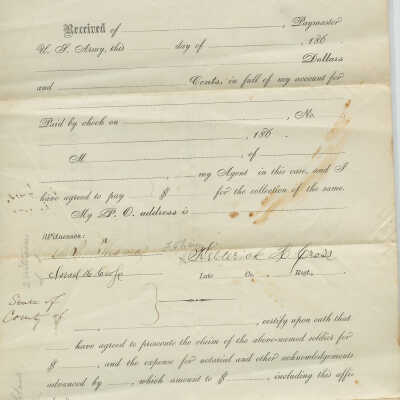 Received of ____, Paymaster
U. S. Army, this ____ day of ____, 186
____ Dollars
and ____ Cents, in full of my account for
Paid by check on ____, No.
____, 186
M ____, of
____, my Agent in this case, and I
have agreed to pay $ ____ for the collection of the same.
My P. O. address is
Witnesses:
Cross
Late Co. Regt.
State of
County of
____, certify upon oath that
____ have agreed to prosecute the claim of the above-named soldier for
$____, and the expense for notarial and other acknowledgements
advanced by ____, which amount to $____, including this affi